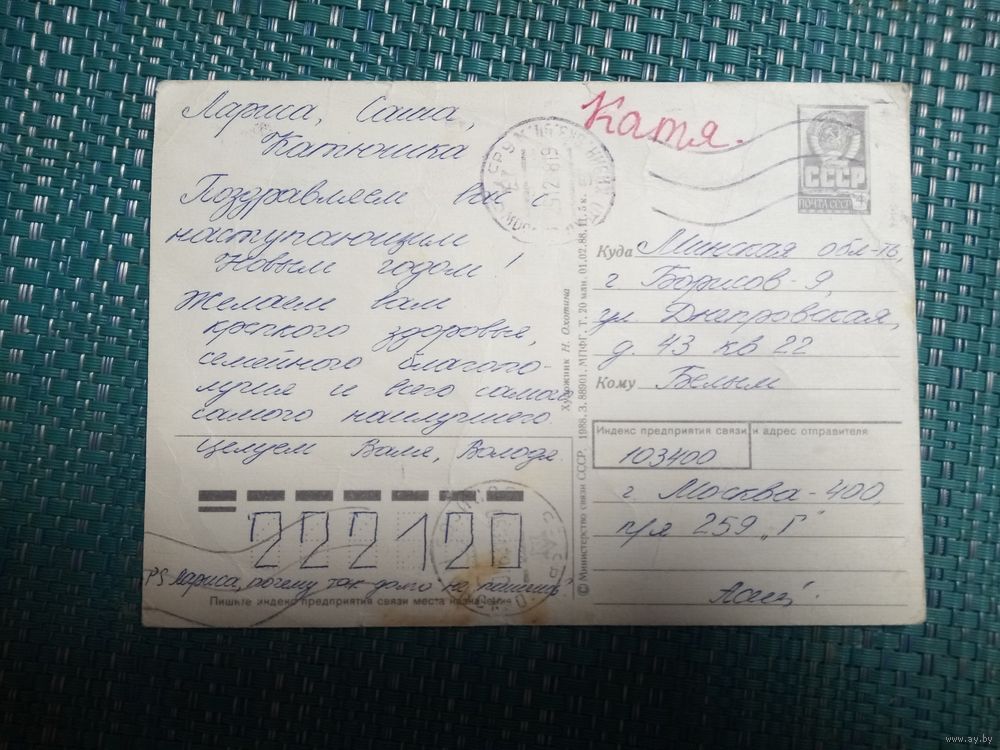 Лариса, Саша,
Катюшка
Поздравляем Вас с
наступающим
Новым годом!
Желаем вам
крепкого здоровья,
семейного благопо-
лучия и всего самого
самого наилучшего.
Целуем Валя, Володя.
222120
PS Лариса, почему так долго не пишешь?
Пишите индекс предприятия связи места назначения
Катя.
СССР
ПОЧТА СССР
4
Куда Минская обл-ть,
г. Борисов-9,
ул Днепровская,
д. 43 кв 22
Кому Белым
Индекс предприятия связи и адрес отправителя
103400
г. Москва-400,
п/я 259 „Г"
Художник Н. Охотина
© Министерство связи СССР. 1988. З. 88901. МПФГ. Т. 20 млн. 01.02.88. Ц. 5 к.
www.ay.by